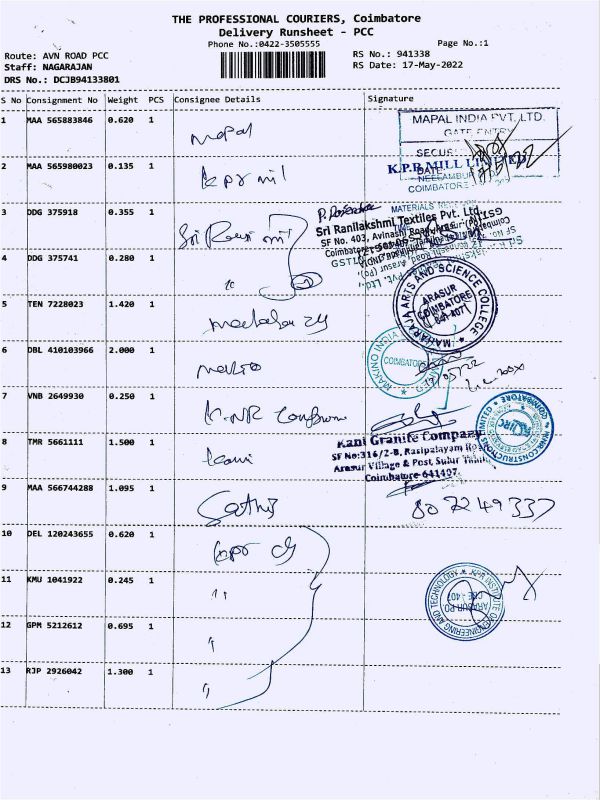 THE PROFESSIONAL COURIERS, Coimbatore
Delivery Runsheet - PCC
Phone No.:0422-3505555
Page No.:1
Route: AVN ROAD PCC
Staff: NAGARAJAN
DRS No.: DCJB94133801
RS No.: 941338
RS Date: 17-May-2022
S No Consignment No Weight PCS Consignee Details Signature
1 MAA 565883846 0.620 1 mapal
MAPAL INDIA PVT. LTD.
GATE ENTRY
2 MAA 565980023 0.135 1 kpr mil
K.P.R MILL LIMITED
COIMBATORE
3 DDG 375918 0.355 1 Sri Rani mil
Sri Ranilakshmi Textiles Pvt. Ltd.,
SF No. 403, Avinashi Road
4 DDG 375741 0.280 1 "
MAHARAJA ARTS AND SCIENCE COLLEGE
ARASUR
COIMBATORE
641 407
5 TEN 7228023 1.420 1
6 DBL 410103966 2.000 1
MAKINO INDIA
COIMBATORE
7 VNB 2649930 0.250 1 KNR
KNR CONSTRUCTIONS LIMITED
8 TMR 5661111 1.500 1 kani
Kani Granite Company
SF No:316/2-B, Rasipalayam Road
Arasur Village & Post, Sulur Taluk
Coimbatore 641407.
9 MAA 566744288 1.095 1 Sathis
8072249337
10 DEL 120243655 0.620 1 kpr clg
11 KMU 1041922 0.245 1 "
KPR INSTITUTE OF ENGINEERING AND TECHNOLOGY
ARASUR PO
CBE - 407
12 GPM 5212612 0.695 1 "
13 RJP 2926042 1.300 1 "